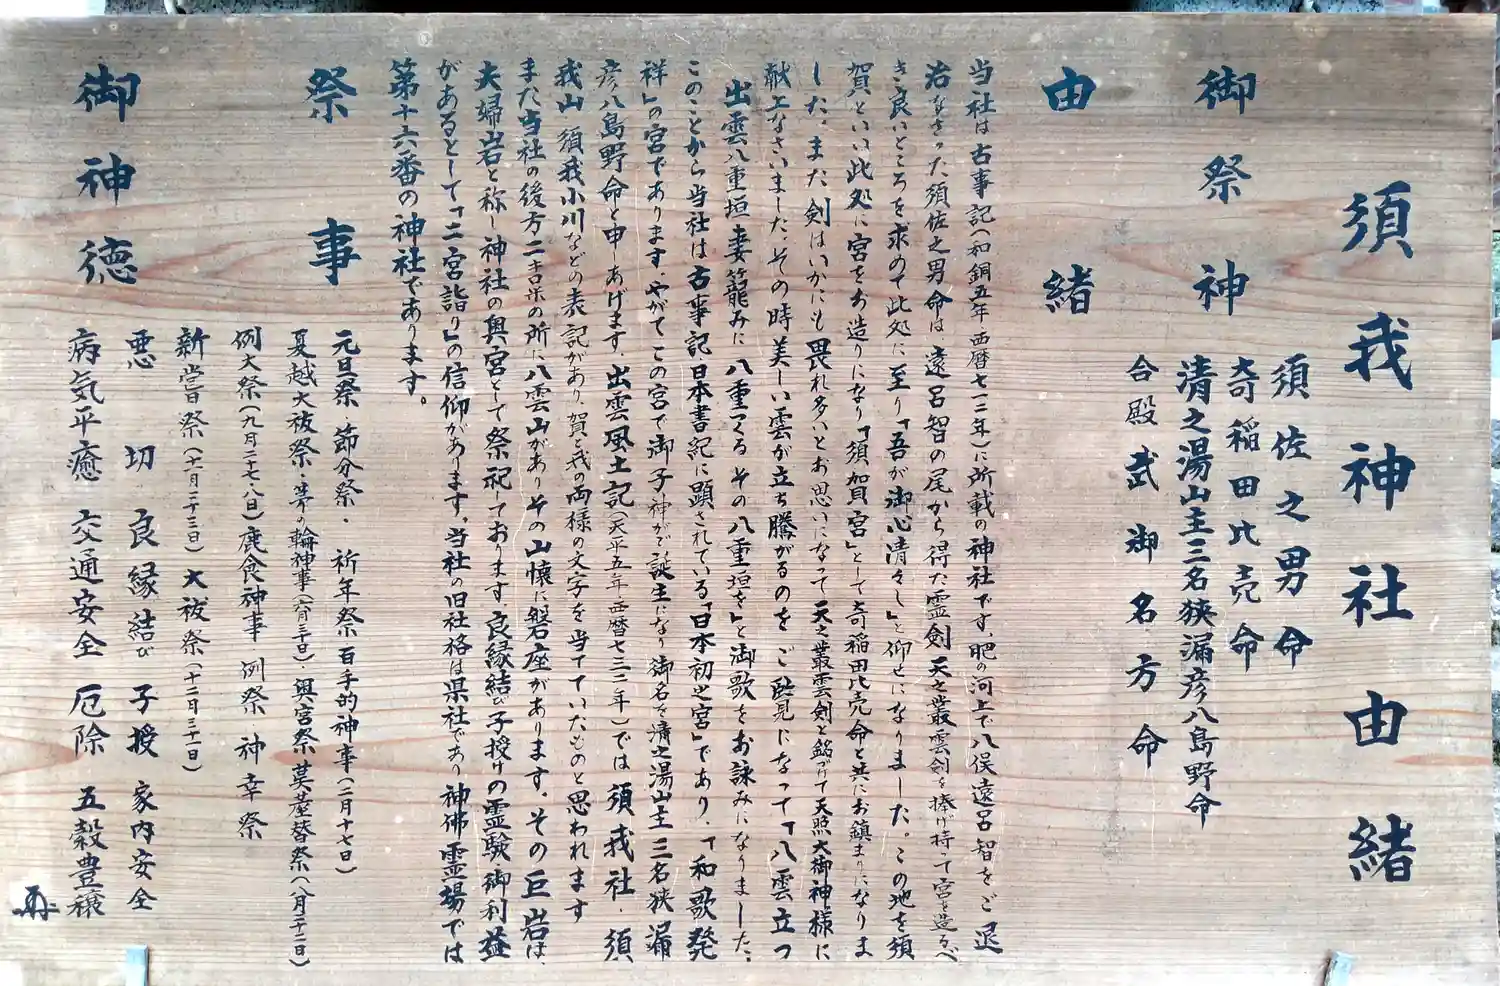 須我神社由緒
御祭神
須佐之男命
奇稲田比売命
清之湯山主三名狭漏彦八島野命
合殿 武御名方命
由緒
当社は古事記(和銅五年 西暦七一二年)に所載の神社です。肥の河上で八俣遠呂智をご退
治なさった須佐之男命は、遠呂智の尾から得た霊剣 天之叢雲剣を捧げ持って宮を造るべ
き良いところを求めて此処に至り「吾が御心清々し」と仰せになりました。この地を須
賀といい此処に宮をお造りになり「須加宮」として奇稲田比売命と共にお鎮まりになりま
した。また剣はいかにも畏れ多いとお思いになって天之叢雲剣と銘づけて天照大御神様に
献上なさいました。その時美しい雲が立ち騰がるのをご覧になって「八雲立つ
出雲八重垣 妻籠みに 八重つくる その八重垣を」と御歌をお詠みになりました。
このことから当社は古事記日本書記に顕されている「日本初之宮」であり、「和歌発
祥」の宮であります。やがてこの宮で御子神がご誕生になり御名を清之湯山主三名狭漏
彦八島野命と申しあげます。出雲風土記(天平五年 西暦七三三年)では須我社・須
我山 須我小川などの表記があり、賀と我の両様の文字を当てていたものと思われます
また当社の後方二キロ米の所に八雲山がありその山懐に磐座があります。その巨岩は、
夫婦岩と称し神社の奥宮として祭祀しております。良縁結び子授けの霊験・御利益
があるとして「二宮詣り」の信仰があります。当社の旧社格は県社であり神佛霊場では
第十六番の神社であります。
祭事
元旦祭 節分祭・祈年祭 百手的神事(二月十七日)
夏越大祓祭・茅の輪神事(六月三十日)・奥宮祭 茣蓙替祭(八月二十二日)
例大祭(九月二十七・八日)鹿食神事 例祭・神幸祭
新嘗祭(十一月二十三日) 大祓祭(十二月三十一日)
御神徳
悪切 良縁結び 子授 家内安全
病気平癒 交通安全 厄除 五穀豊穣